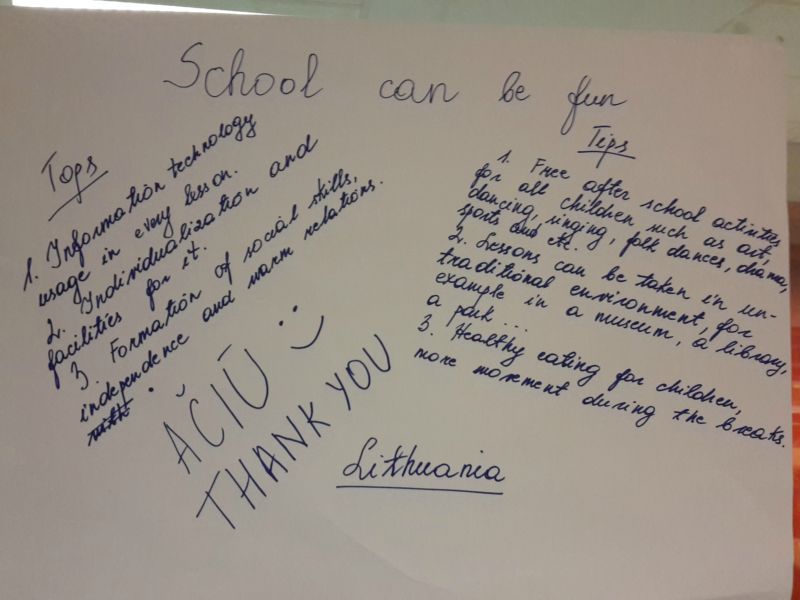 School can be fun
Tops
1. Information technology
usage in every lesson.
2. Individualization and
facilities for it.
3 Formation of social skills,
independence and warm relations.
AČIŪ
THANK YOU
Tips
1. Free after school activities
for all children such as art,
dancing, singing, folk dances, drama,
sports and etc.
2. Lessons can be taken in un-
traditional environment, for
example in a museum, a library,
a park ...
3. Healthy eating for children,
more movement during the breaks.
Lithuania